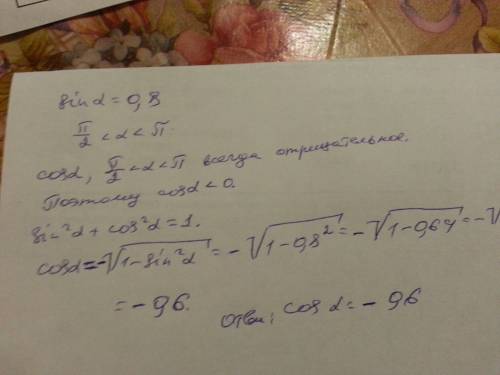 sin α = 0,8
π/2 < α < π.
cos α, π/2 < α < π всегда отрицательное.
Поэтому cos α < 0.
sin²α + cos²α = 1.
cos α = -√(1-sin²α) = -√(1-0,8²) = -√(1-0,64) = -√
= -0,6.
Ответ: cos α = -0,6